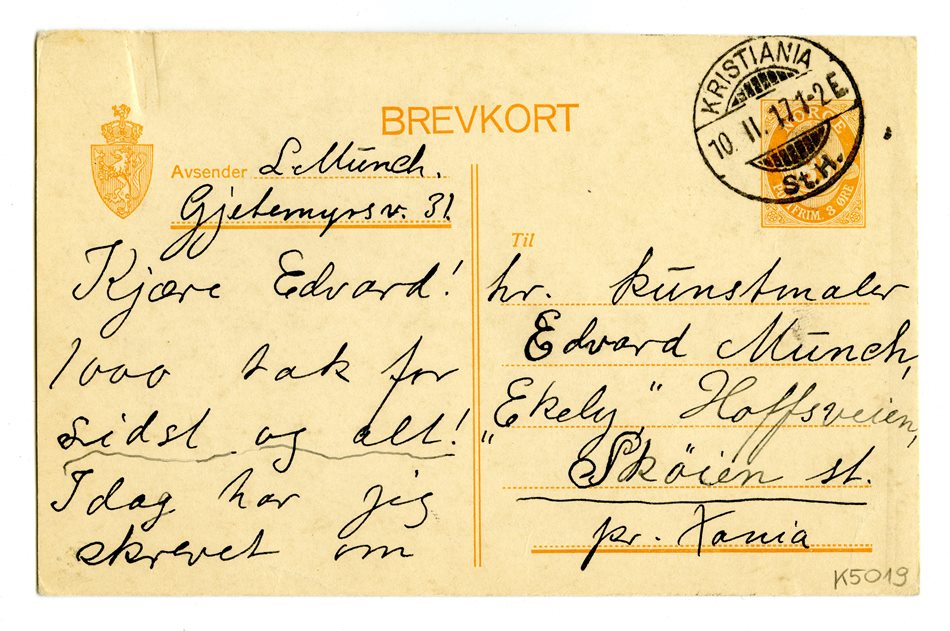 BREVKORT
Avsender L Munch.
Gjetemyrsv. 31.
Kjære Edvard!
1000 tak for
sidst og alt!
Idag har jig
skrevet om
KRISTIANIA
10. II. 17. 1-2 E
St.H.
NORGE
POSTFRIM. 3 ØRE
Til
hr. kunstmaler
Edvard Munch,
"Ekely" Hoffsveien,
Skøien st.
pr. Xania
K5019